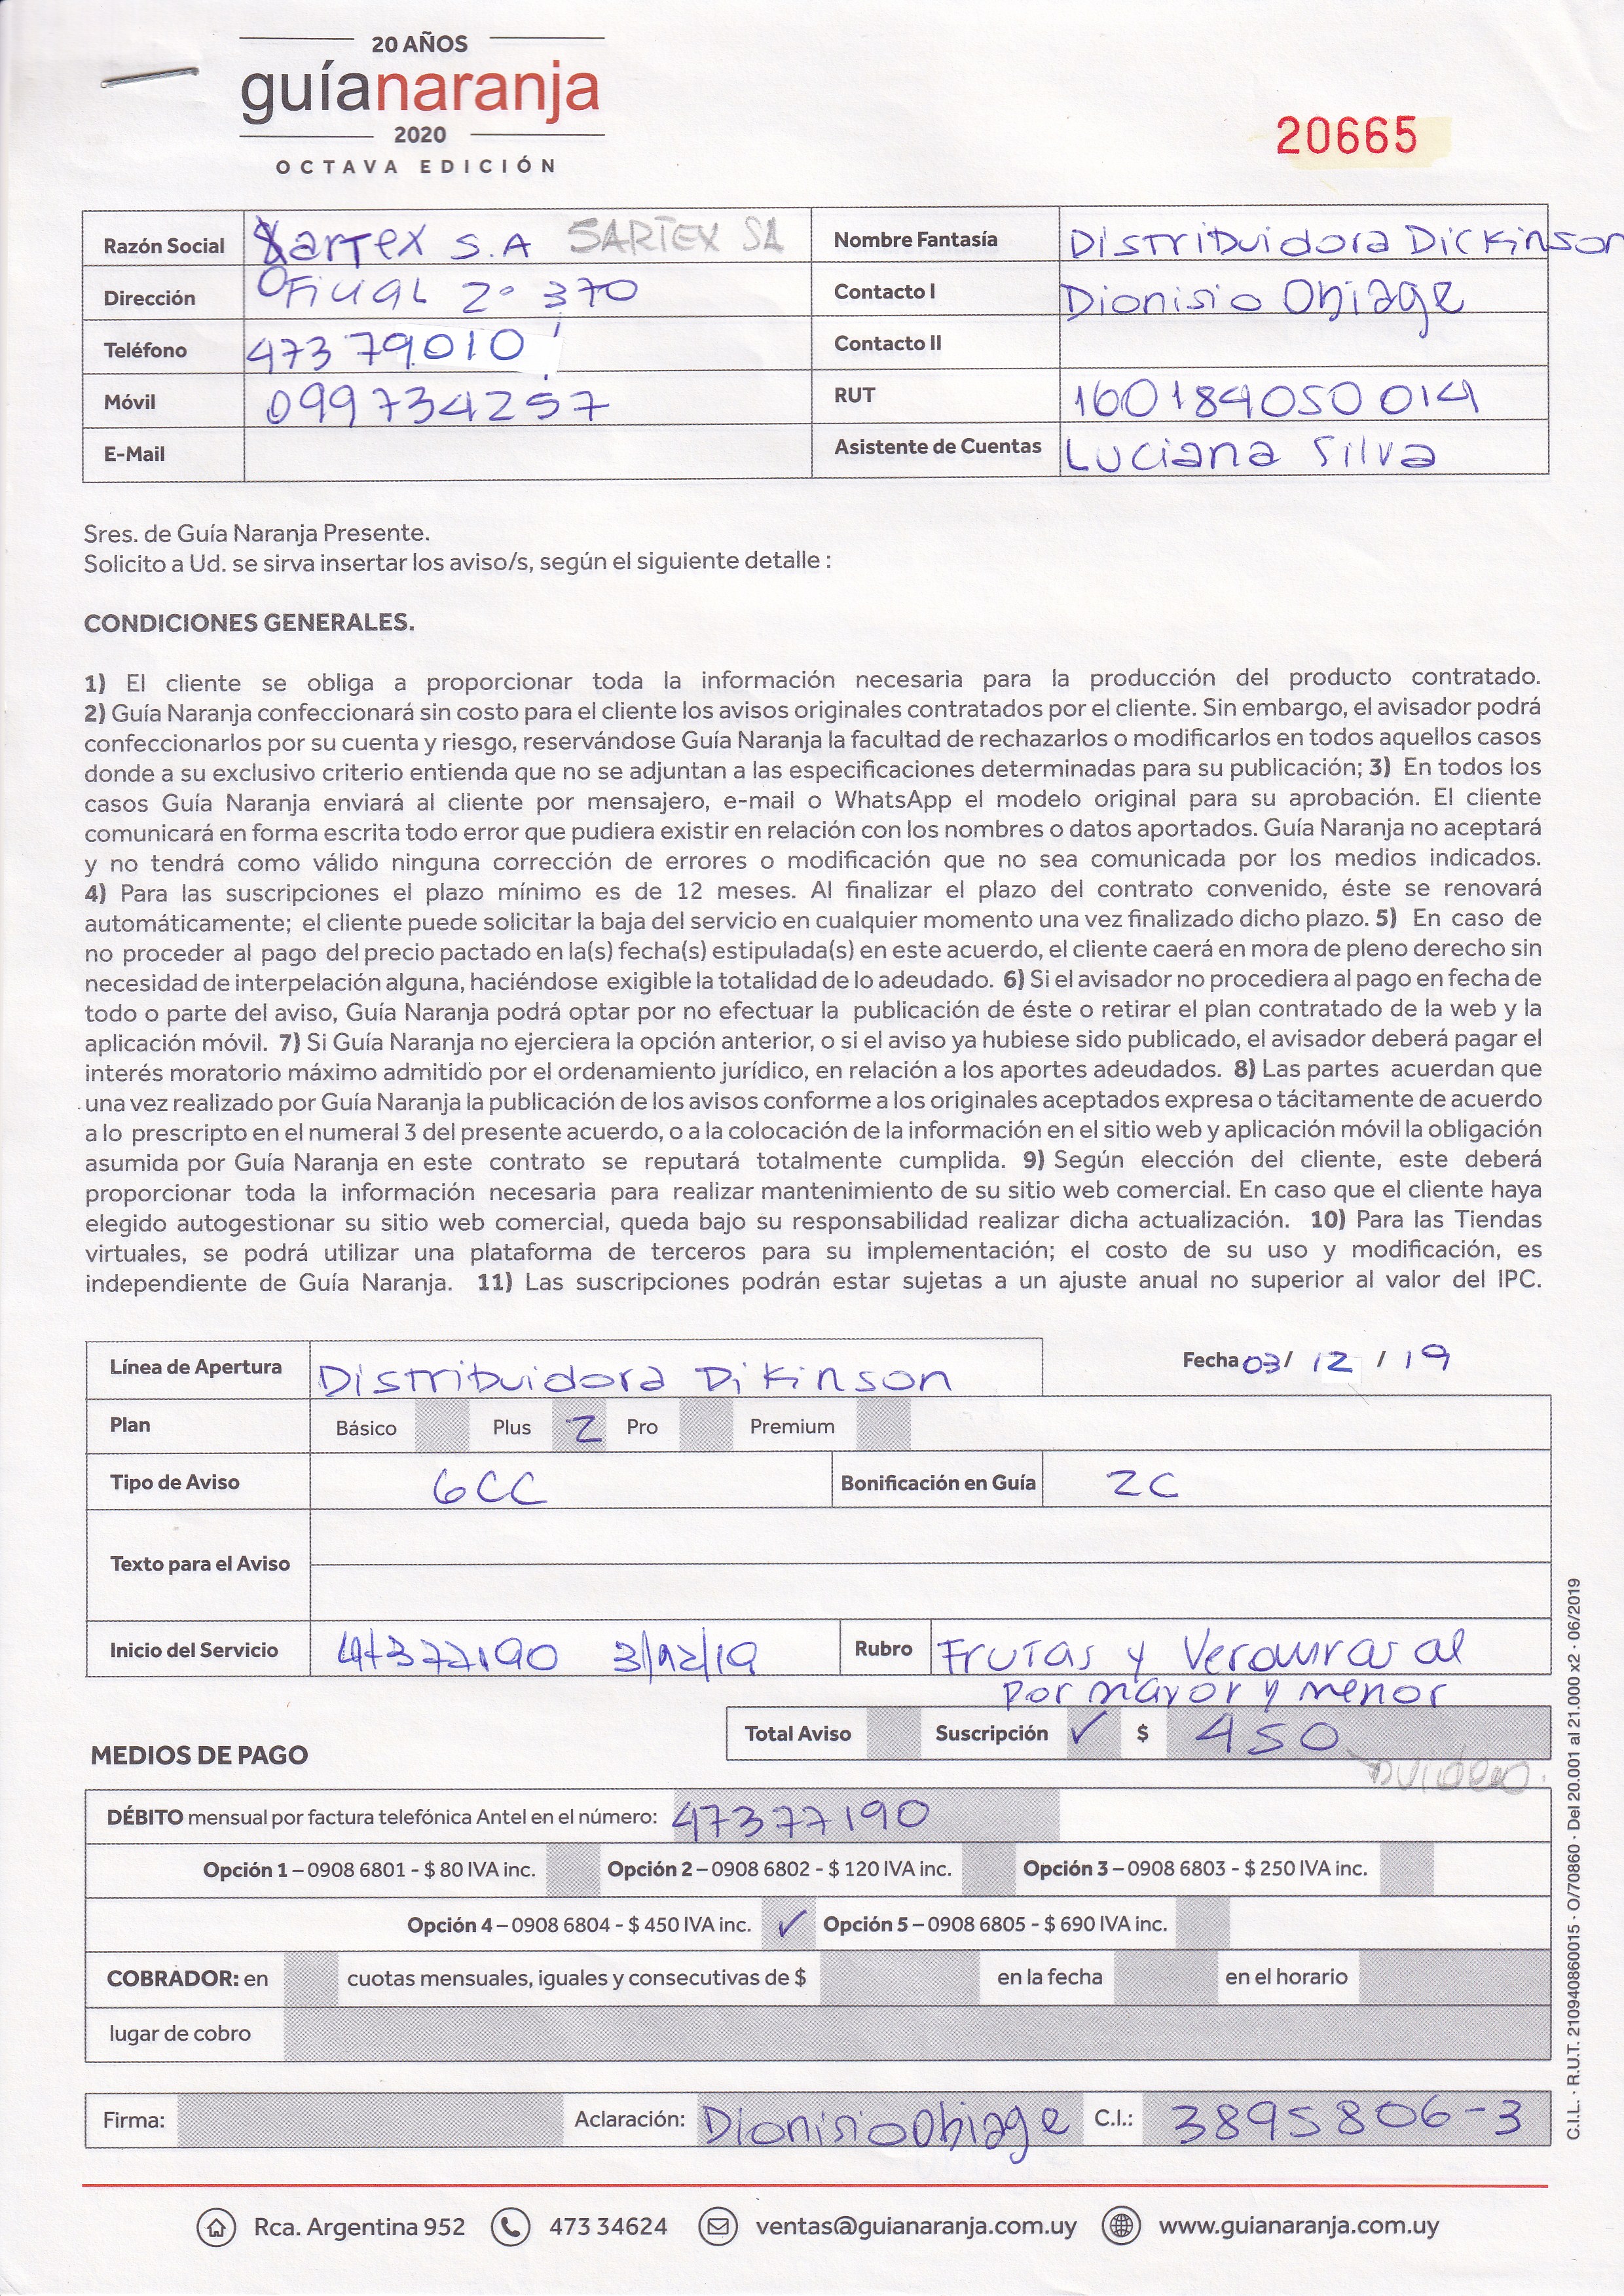 20 AÑOS
guíanaranja
2020
OCTAVA EDICIÓN
20665
Razón Social Xartex S.A SARTEX SA Nombre Fantasía Distribuidora Dickinson
Dirección Oficial 2º 370 Contacto I Dionisio Obiage
Teléfono 473 79010 Contacto II
Móvil 099734257 RUT 160184050014
E-Mail Asistente de Cuentas Luciana Silva
Sres. de Guía Naranja Presente.
Solicito a Ud. se sirva insertar los aviso/s, según el siguiente detalle :
CONDICIONES GENERALES.
1) El cliente se obliga a proporcionar toda la información necesaria para la producción del producto contratado.
2) Guía Naranja confeccionará sin costo para el cliente los avisos originales contratados por el cliente. Sin embargo, el avisador podrá
confeccionarlos por su cuenta y riesgo, reservándose Guía Naranja la facultad de rechazarlos o modificarlos en todos aquellos casos
donde a su exclusivo criterio entienda que no se adjuntan a las especificaciones determinadas para su publicación; 3) En todos los
casos Guía Naranja enviará al cliente por mensajero, e-mail o WhatsApp el modelo original para su aprobación. El cliente
comunicará en forma escrita todo error que pudiera existir en relación con los nombres o datos aportados. Guía Naranja no aceptará
y no tendrá como válido ninguna corrección de errores o modificación que no sea comunicada por los medios indicados.
4) Para las suscripciones el plazo mínimo es de 12 meses. Al finalizar el plazo del contrato convenido, éste se renovará
automáticamente; el cliente puede solicitar la baja del servicio en cualquier momento una vez finalizado dicho plazo. 5) En caso de
no proceder al pago del precio pactado en la(s) fecha(s) estipulada(s) en este acuerdo, el cliente caerá en mora de pleno derecho sin
necesidad de interpelación alguna, haciéndose exigible la totalidad de lo adeudado. 6) Si el avisador no procediera al pago en fecha de
todo o parte del aviso, Guía Naranja podrá optar por no efectuar la publicación de éste o retirar el plan contratado de la web y la
aplicación móvil. 7) Si Guía Naranja no ejerciera la opción anterior, o si el aviso ya hubiese sido publicado, el avisador deberá pagar el
interés moratorio máximo admitido por el ordenamiento jurídico, en relación a los aportes adeudados. 8) Las partes acuerdan que
una vez realizado por Guía Naranja la publicación de los avisos conforme a los originales aceptados expresa o tácitamente de acuerdo
a lo prescripto en el numeral 3 del presente acuerdo, o a la colocación de la información en el sitio web y aplicación móvil la obligación
asumida por Guía Naranja en este contrato se reputará totalmente cumplida. 9) Según elección del cliente, este deberá
proporcionar toda la información necesaria para realizar mantenimiento de su sitio web comercial. En caso que el cliente haya
elegido autogestionar su sitio web comercial, queda bajo su responsabilidad realizar dicha actualización. 10) Para las Tiendas
virtuales, se podrá utilizar una plataforma de terceros para su implementación; el costo de su uso y modificación, es
independiente de Guía Naranja. 11) Las suscripciones podrán estar sujetas a un ajuste anual no superior al valor del IPC.
Línea de Apertura Distribuidora Dikinson Fecha 03/ 12 / 19
Plan Básico Plus 2 Pro Premium
Tipo de Aviso 6CC Bonificación en Guía 2C
Texto para el Aviso
Inicio del Servicio 47377190 3/12/19 Rubro Frutas y Verduras al
por mayor y menor
Total Aviso Suscripción ✓ $ 450
MEDIOS DE PAGO
DÉBITO mensual por factura telefónica Antel en el número: 47377190
Opción 1 – 0908 6801 - $ 80 IVA inc. Opción 2 – 0908 6802 - $ 120 IVA inc. Opción 3 – 0908 6803 - $ 250 IVA inc.
Opción 4 – 0908 6804 - $ 450 IVA inc. ✓ Opción 5 – 0908 6805 - $ 690 IVA inc.
COBRADOR: en cuotas mensuales, iguales y consecutivas de $ en la fecha en el horario
lugar de cobro
Firma: Aclaración: Dionisio Obiage C.I.: 3895806-3
Rca. Argentina 952 473 34624 ventas@guianaranja.com.uy www.guianaranja.com.uy
C.I.L. · R.U.T. 210940860015 · O/70860 · Del 20.001 al 21.000 x2 · 06/2019